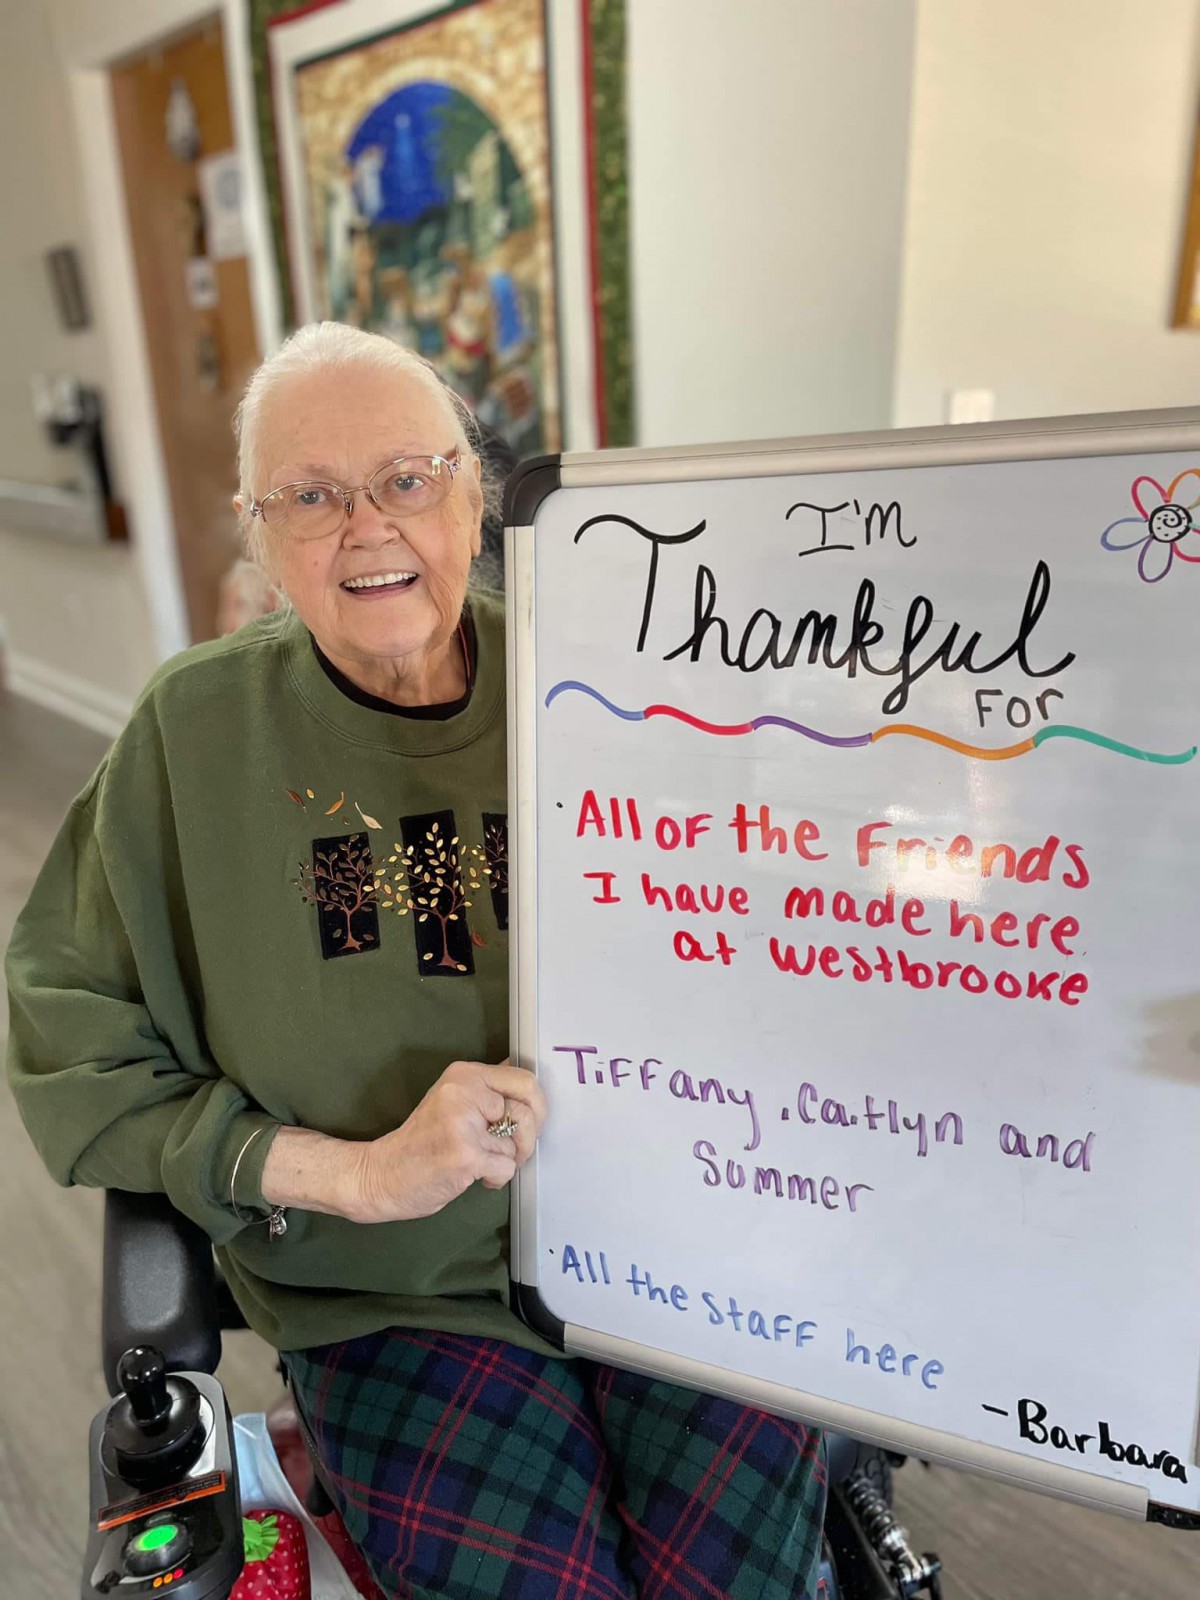 I'm
Thankful
For
· All of the Friends
I have made here
at Westbrooke
Tiffany, Caitlyn and
Summer
· All the staff here
- Barbara